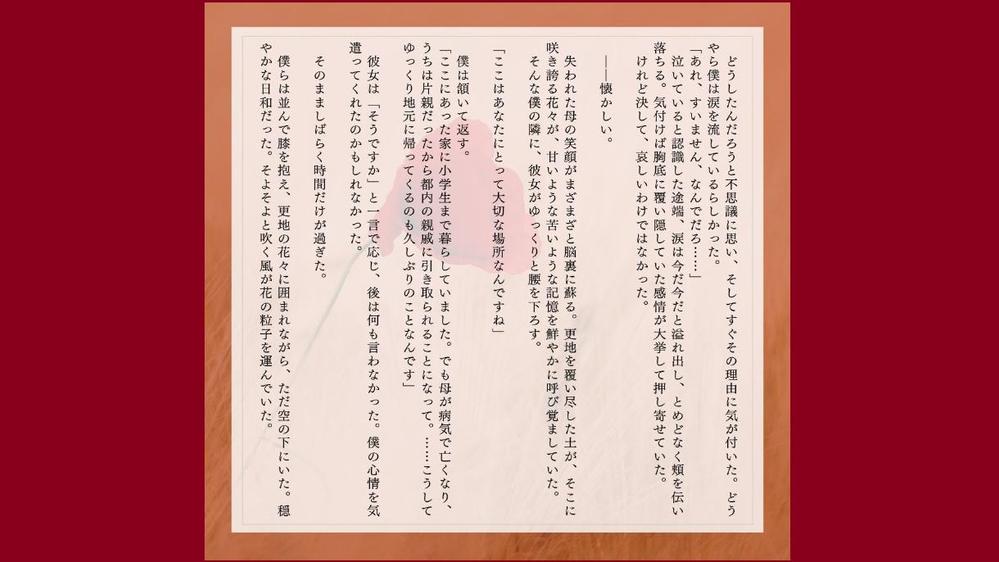 どうしたんだろうと不思議に思い、そしてすぐその理由に気が付いた。どう
やら僕は涙を流しているらしかった。
「あれ、すいません、なんでだろ……」
　泣いていると認識した途端、涙は今だ今だと溢れ出し、とめどなく頬を伝い
落ちる。気付けば胸底に覆い隠していた感情が大挙して押し寄せていた。
　けれど決して、哀しいわけではなかった。
　――懐かしい。
　失われた母の笑顔がまざまざと脳裏に蘇る。更地を覆い尽した土が、そこに
咲き誇る花々が、甘いような苦いような記憶を鮮やかに呼び覚ましていた。
　そんな僕の隣に、彼女がゆっくりと腰を下ろす。
「ここはあなたにとって大切な場所なんですね」
　僕は頷いて返す。
「ここにあった家に小学生まで暮らしていました。でも母が病気で亡くなり、
うちは片親だったから都内の親戚に引き取られることになって。……こうして
ゆっくり地元に帰ってくるのも久しぶりのことなんです」
　彼女は「そうですか」と一言で応じ、後は何も言わなかった。僕の心情を気
遣ってくれたのかもしれなかった。
　そのまましばらく時間だけが過ぎた。
　僕らは並んで膝を抱え、更地の花々に囲まれながら、ただ空の下にいた。穏
やかな日和だった。そよそよと吹く風が花の粒子を運んでいた。